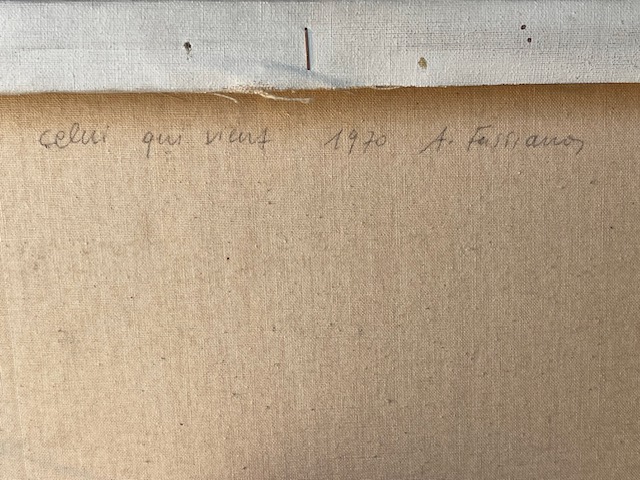 celui qui vient 1970 A. Fassianos